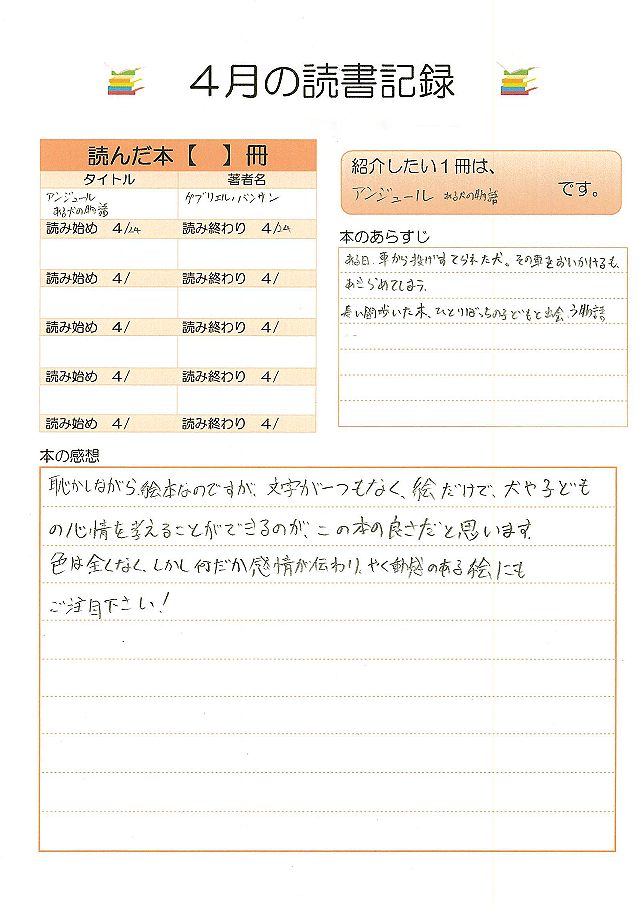 4月の読書記録
読んだ本【 】冊
タイトル 著者名
アンジュール ガブリエル・バンサン
ある犬の物語
読み始め 4/24 読み終わり 4/24
読み始め 4/ 読み終わり 4/
読み始め 4/ 読み終わり 4/
読み始め 4/ 読み終わり 4/
読み始め 4/ 読み終わり 4/
紹介したい1冊は、
アンジュール ある犬の物語 です。
本のあらすじ
ある日、車から投げすてられた犬。その車をおいかけるも、
あきらめてしまう。
長い間歩いた末、ひとりぼっちの子どもと出会う物語
本の感想
恥かしながら、絵本なのですが、文字が一つもなく、絵だけで、犬や子ども
の心情を考えることができるのが、この本の良さだと思います。
色は全くなく、しかし何だか感情が伝わり、やく動感のある絵にも
ご注目下さい!